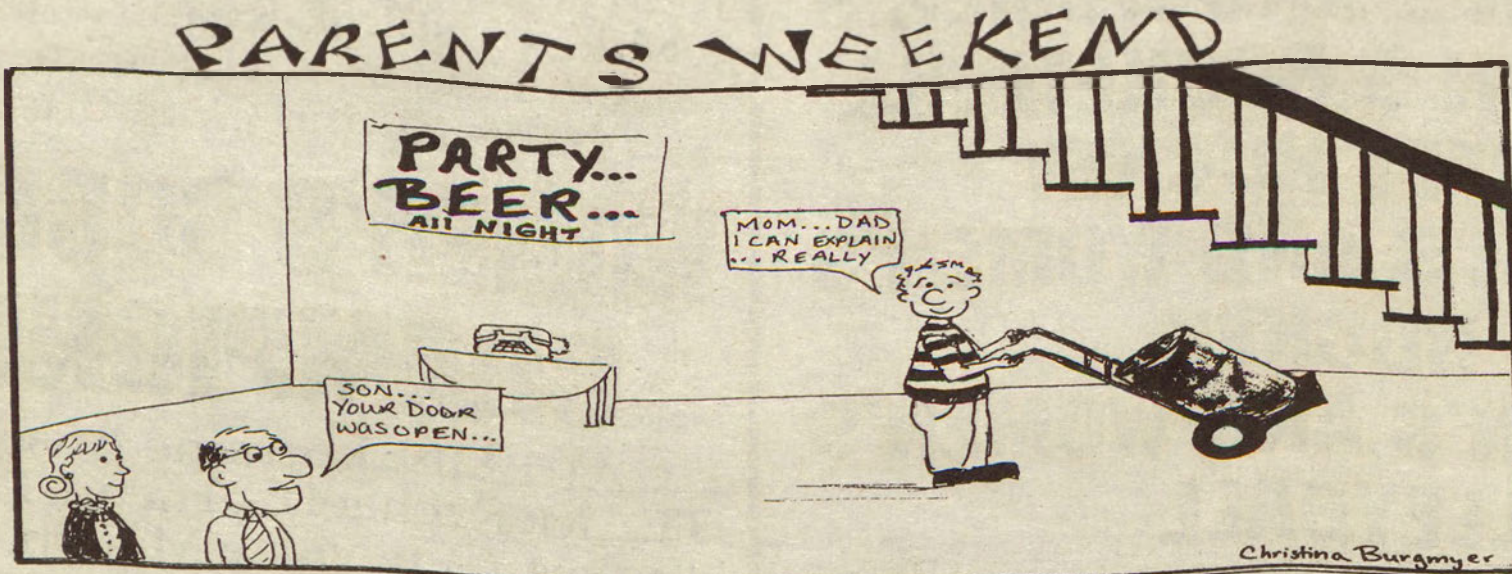 PARENTS WEEKEND
PARTY...
BEER...
All NIGHT
MOM...DAD
I CAN EXPLAIN
... REALLY
SON...
YOUR DOOR
WAS OPEN...
Christina Burgmyer